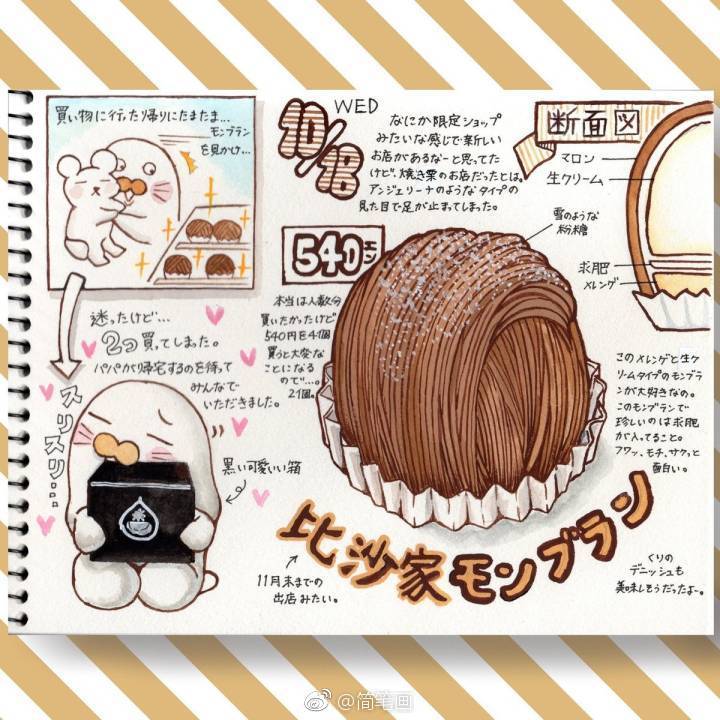 買い物に行った帰りにたまたま…
モンブラン
を見かけ…
10/18
WED
なにか限定ショップ
みたいな感じで新しい
お店があるなーと思ってた
けど、焼き栗のお店だったとは。
アンジェリーナのようなタイプの
見た目で足が止まってしまった。
断面図
マロン
生クリーム
求肥
メレンゲ
雪のような
粉糖
540エン
本当は人数分
買いたかったけど
540円を4個
買うと大変な
ことになる
ので…。
2個。
迷ったけど…
2つ買ってしまった。
パパが帰宅するのを待って
みんなで
いただきました。
スリスリ…
スリ
黒い可愛いい箱
このメレンゲと生ク
リームタイプのモンブラ
ンが大好きなの。
このモンブランで
珍しいのは求肥
が入ってること。
フワッ、モチ、サクッと
面白い。
比沙家モンブラン
11月末までの
出店みたい。
くりの
デニッシュも
美味しそうだったよ~。
@简笔画